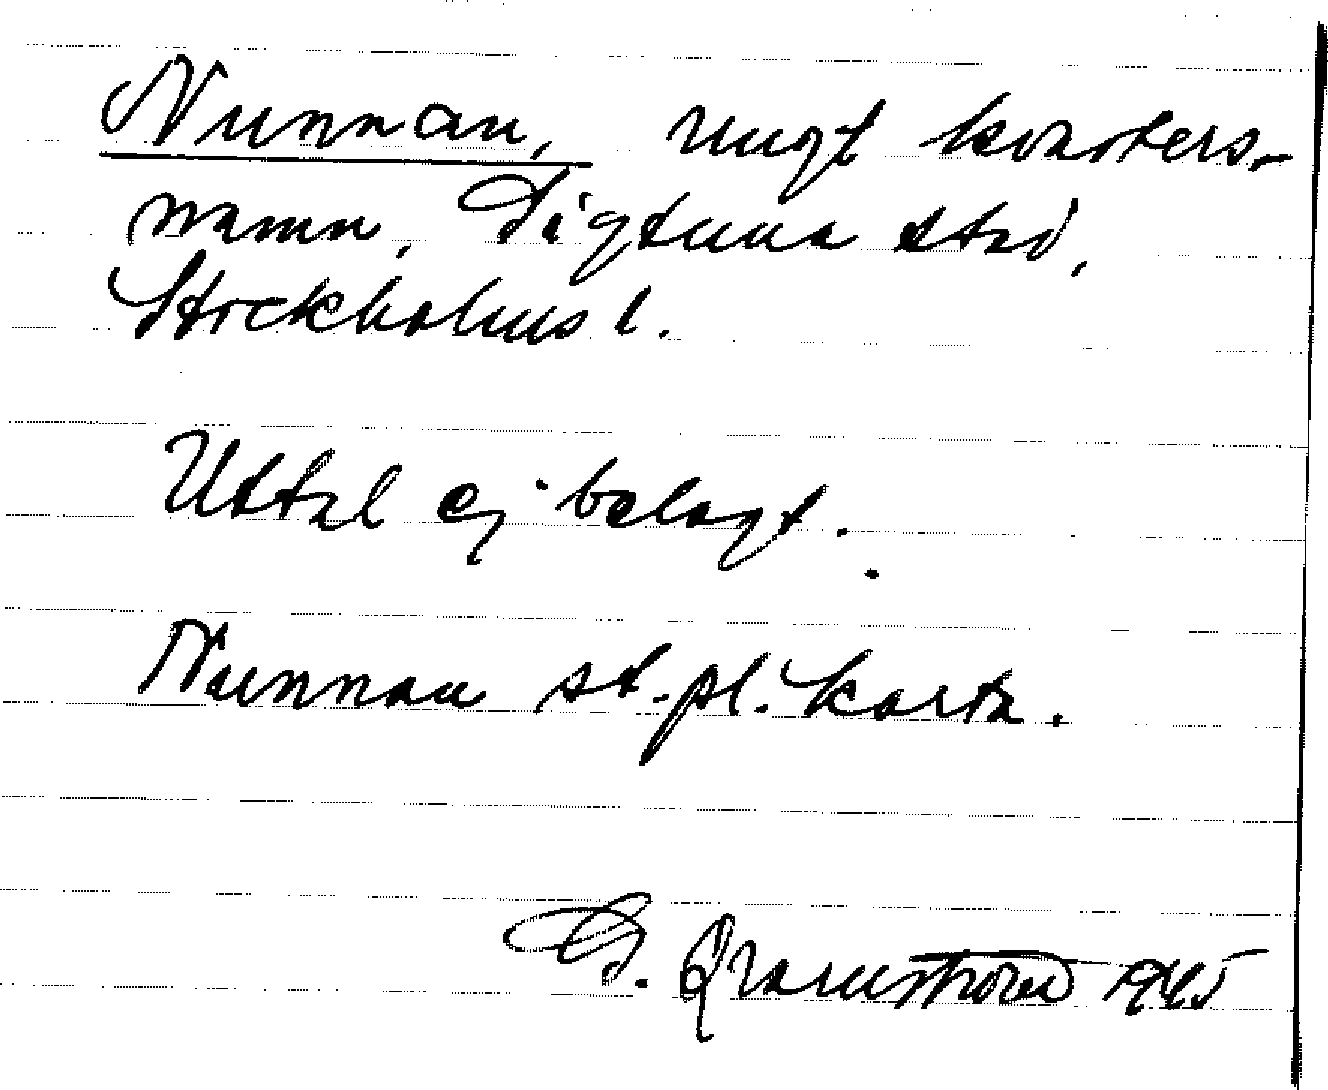 Nunnan, nugt kvarters-
namn, Sigtuna stad,
Stockholms l.
Uttal ej belagt.
Nunnan st.pl.karta.
G. 1945